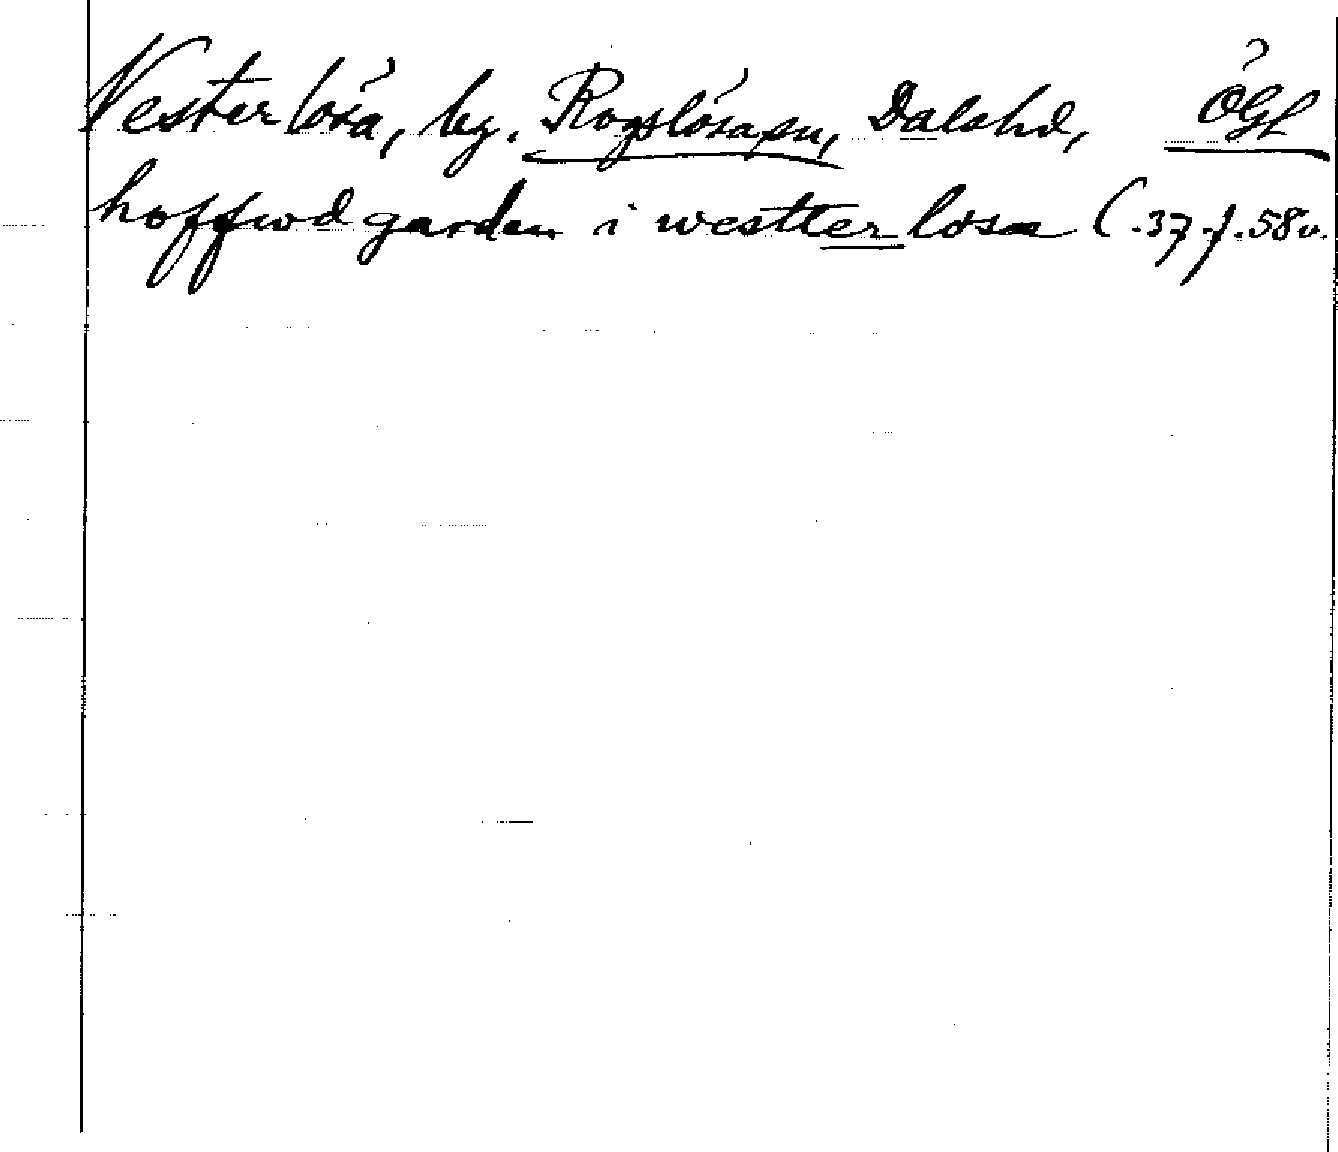 Vesterlösa, by, Rogslösa sn, Dals hd, ÖGL
hoffwdgarden i westterlosa C.37 f.58v.